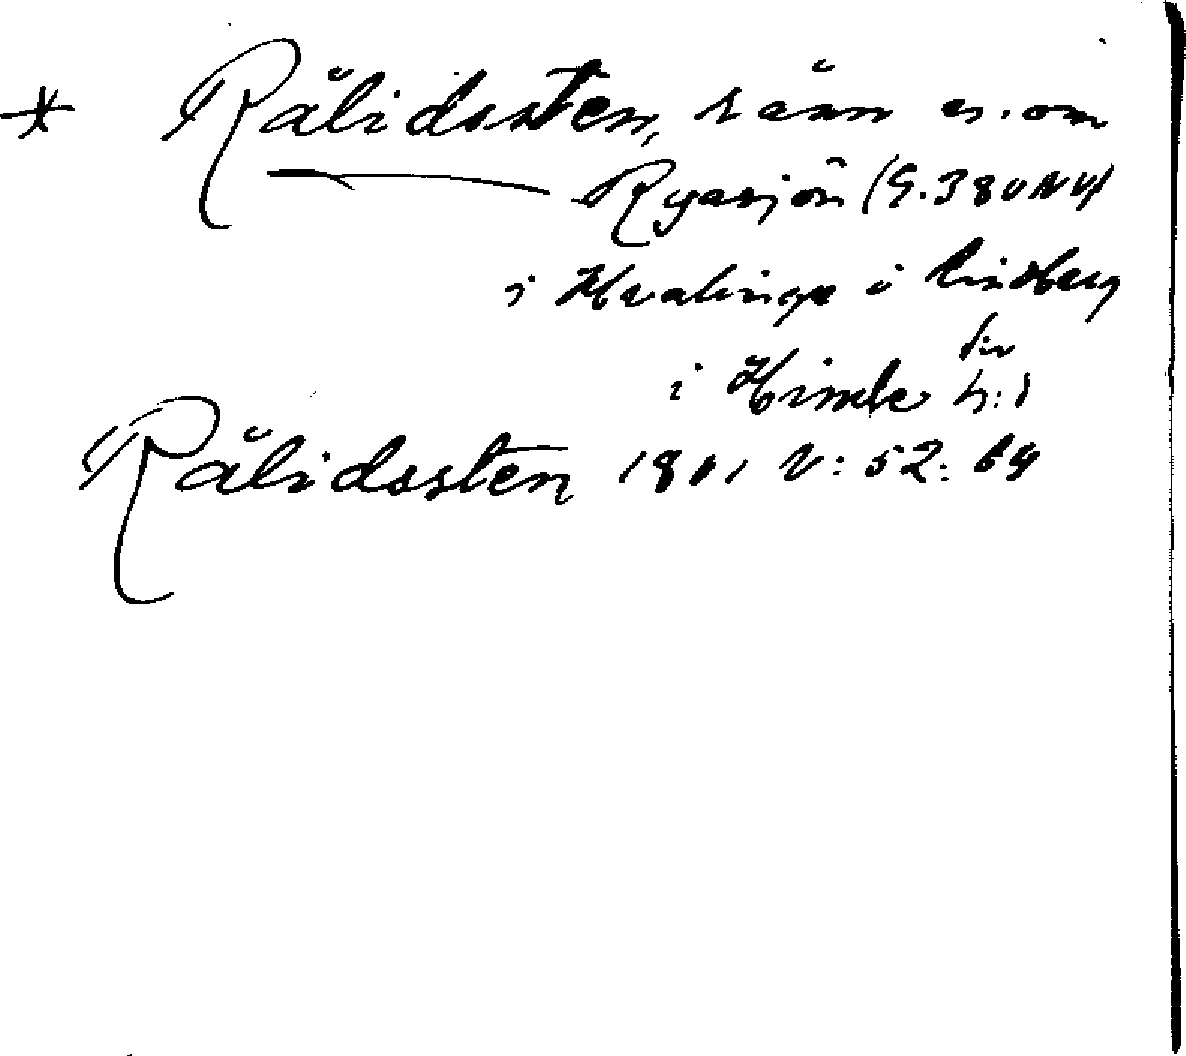 * Rälidssten, känn n. om
Ryasjön (G. 380 NV)
i Hvalinge i Lindberg
i Himle h:d
Rälidssten 1801 V: 52: 69